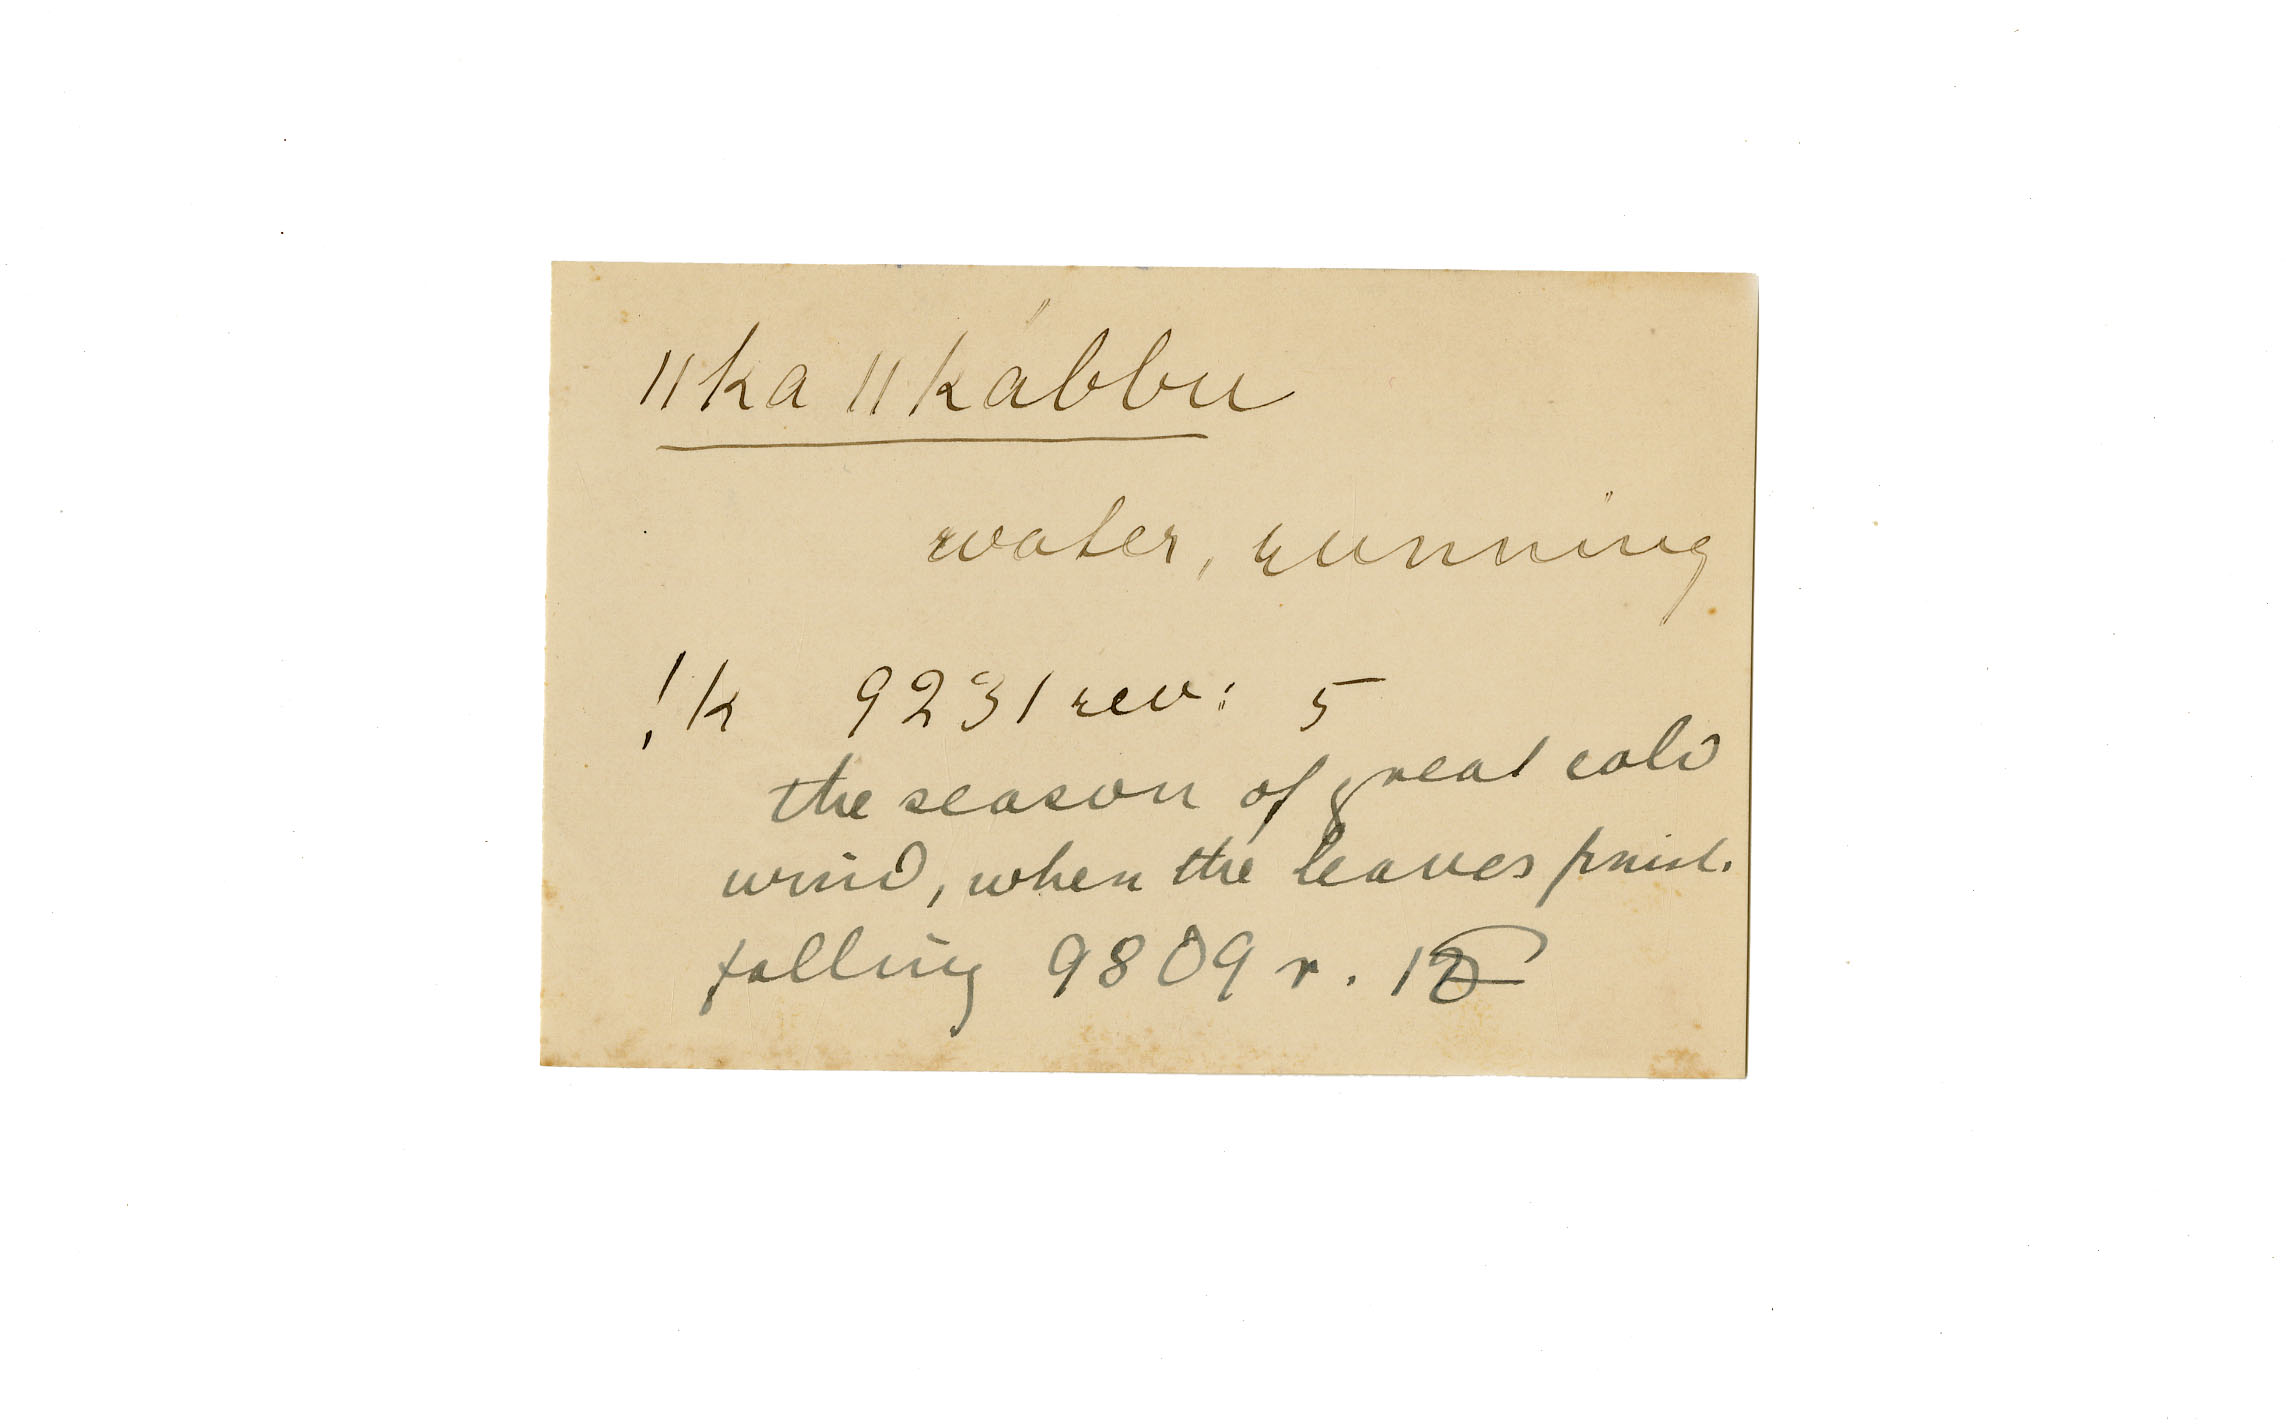 ǁka ǁkábbu
water, running
!k 9231 rev: 5
the season of great cold
wind, when the leaves finish.
falling 9809 r.